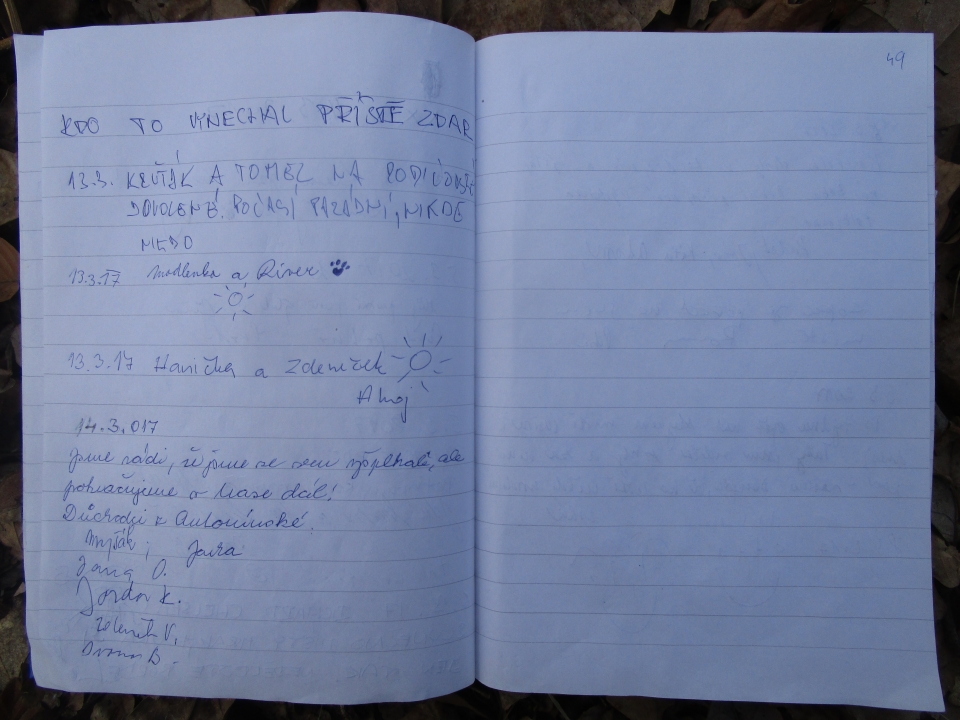 49
KDO TO VYNECHAL PŘÍŠTĚ ZDAR
13.3. KEŤÁK A TOMEL NA RODIČOVSKÉ
DOVOLENÉ. POČASÍ PARÁDNÍ, NIKDE
NIKDO
13.3.17 Madlenka a River
13.3.17 Hanička a Zdeníček
Ahoj
14.3.017
Jsme rádi, že jsme se sem vyšplhali, ale
pokračujeme v trase dál!
Důchodci z Antonínské.
Jara
Jana O.
Jordan K.
Zdeněk V.
B.